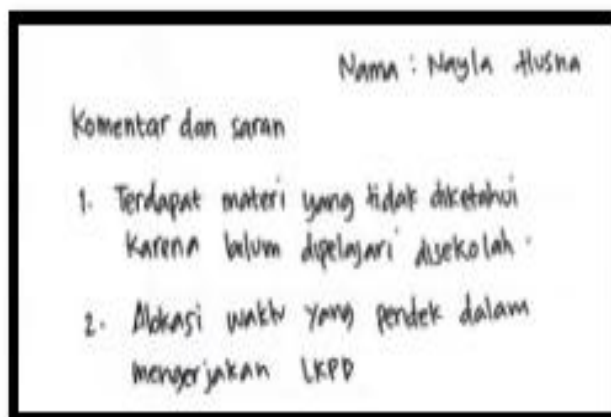 Nama : Nayla Husna
Komentar dan saran
1. Terdapat materi yang tidak diketahui
karena belum dipelajari disekolah.
2. Alokasi waktu yang pendek dalam
mengerjakan LKPD